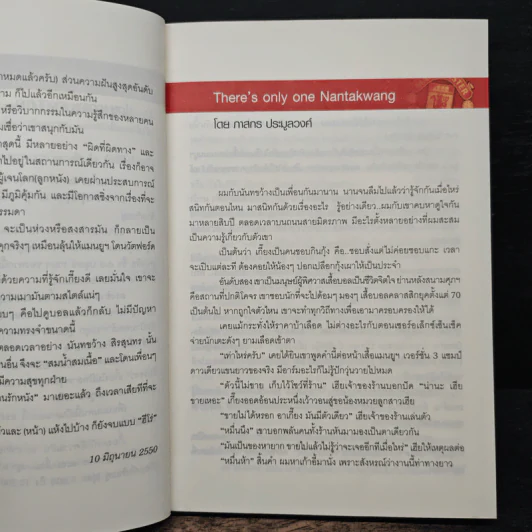 าหมดแล้วครับ) ส่วนความฝันสูงสุดอันดับ
าม ก็ไปแล้วอีกเหมือนกัน
หรือวิบากกรรมในความรู้สึกของหลายคน
มเชื่อว่าเขาสนุกกับมัน
าสุดนี้ มีหลายอย่าง "ผิดที่ผิดทาง" และ
าไปอยู่ในสถานการณ์เดียวกัน เรื่องก็อาจ
ผู้เจนโลก(ลูกหนัง) เคยผ่านประสบการณ์
มีภูมิคุ้มกัน และมีโอกาสชิงจากเรื่องที่จะ
รรมดา
จะเป็นห่วงหรือสงสารมัน ก็กลายเป็น
คุกจริงๆ เหมือนลุ้นให้แมนยูฯ โดนวัตฟอร์ด
ด้วยความที่รู้จักเกี้ยงดี เลยมั่นใจ เขาจะ
ความเมามันตามสไตล์แน่ๆ
อบๆ คือไปดูบอลแล้วก็กลับ ไม่มีปัญหา
ความทรงจำขนาดนี้
ตลอดเวลาอย่าง นันทขว้าง สิรสุนทร นั้น
นอื่น จึงจะ "สมน้ำสมเนื้อ" และโดนเพื่อนๆ
มีความสุขทุกฝ่าย
นรักหนัง" มาเยอะแล้ว ถึงเวลาเสียทีที่จะ
ตัวและ (หน้า) แห้งไปบ้าง ก็ยังจบแบบ "ฮีโร่"
10 มิถุนายน 2550
There's only one Nantakwang
โดย ภาสกร ประมูลวงศ์
ผมกับนันทขว้างเป็นเพื่อนกันมานาน นานจนลืมไปแล้วว่ารู้จักกันเมื่อไหร่
สนิทกันตอนไหน มาสนิทกันด้วยเรื่องอะไร รู้อย่างเดียว..ผมกับเขาคบหาดูใจกัน
มาหลายสิบปี ตลอดเวลาบนถนนสายมิตรภาพ มีอะไรตั้งหลายอย่างที่ผมสะสม
เป็นความรู้เกี่ยวกับตัวเขา
เป็นต้นว่า เกี้ยงเป็นคนชอบกินกุ้ง คือ..ชอบสั่งแต่ไม่ค่อยชอบแกะ เวลา
จะเป็บแต่ละที ต้องคอยให้น้องๆ ปอกเปลือกกุ้งเผาให้เป็นประจำ
อันดับสอง เขาเป็นมนุษย์ผู้พิศวาสเสื้อบอลเป็นชีวิตจิตใจ ย่านหลังสนามศุภฯ
คือสถานที่ปกติโคจร เขาชอบนักที่จะไปด้อมๆ มองๆ เสื้อบอลคลาสสิกยุคตั้งแต่ 70
เป็นต้นไป หากถูกใจตัวไหน เขาจะทำทุกวิถีทางเพื่อเอามาครอบครองให้ได้
เคยแม้กระทั่งให้ราคาบ้าเลือด ไม่ต่างอะไรกับตอนเซอร์อเล็กซ์เซ็นเช็ค
จ่ายนักเตะดังๆ ยามเลือดเข้าตา
"เท่าไหร่ครับ" เคยได้ยินเขาพูดคำนี้ต่อหน้าเสื้อแมนยูฯ เวอร์ชั่น 3 แชมป์
ดาวเดียวแขนยาวของจริง มีอาร์มอะไรก็ไม่รู้ปักวุ่นวายไปหมด
"ตัวนี้ไม่ขาย เก็บไว้โชว์ที่ร้าน" เฮียเจ้าของร้านบอกปัด "น่านะ เฮีย
ขายเหอะ" เกี้ยงออดอ้อนประหนึ่งเว้าวอนสู่ขอน้องหมวยลูกสาวเฮีย
"ขายไม่ได้หรอก อาเกี้ยง มันมีตัวเดียว" เฮียเจ้าของร้านเล่นตัว
"หมื่นนึง" เขาบอกพลันคนทั้งร้านหันมามองเป็นตาเดียวกัน
"มันเป็นของหายาก ขายไปแล้วไม่รู้ว่าจะเจออีกทีเมื่อไหร่" เฮียให้เหตุผลต่อ
"หมื่นห้า" สิ้นคำ ผมหาเก้าอี้มานั่ง เพราะสังหรณ์ว่างานนี้ท่าทางยาว